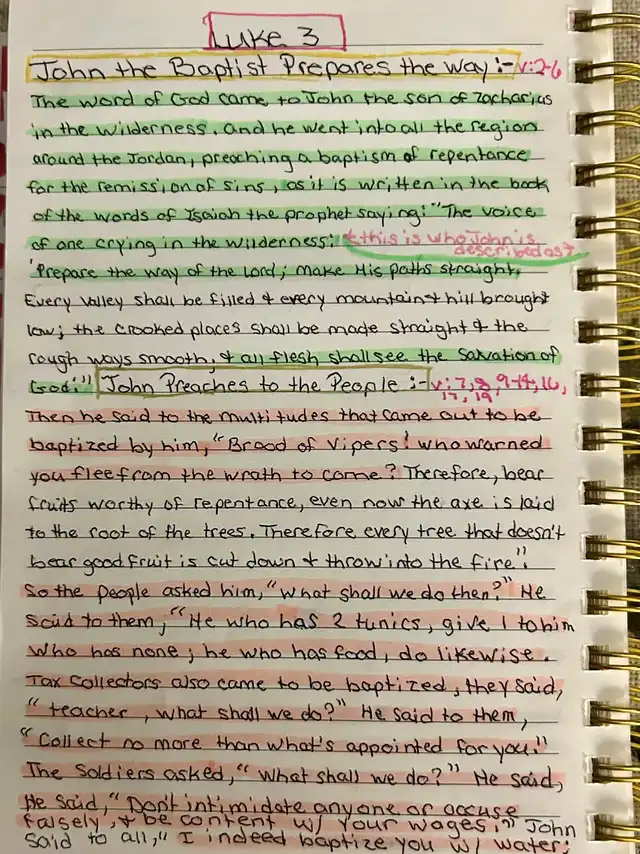 Luke 3
John the Baptist Prepares the way :- v:2-6
The word of God came to John the son of Zacharias
in the wilderness. And he went into all the region
around the Jordan, preaching a baptism of repentance
for the remission of sins, as it is written in the book
of the words of Isaiah the prophet saying: "The voice
of one crying in the wilderness: *this is who John is
described as*
'Prepare the way of the Lord; make His paths straight.
Every valley shall be filled & every mountain & hill brought
low; the crooked places shall be made straight & the
rough ways smooth, & all flesh shall see the salvation of
God:'" John Preaches to the People :- v:7, 8, 9-14, 16,
17, 19
Then he said to the multitudes that came out to be
baptized by him, "Brood of Vipers! who warned
you flee from the wrath to come? Therefore, bear
fruits worthy of repentance, even now the axe is laid
to the root of the trees. Therefore every tree that doesn't
bear good fruit is cut down & throw into the fire."
So the people asked him, "What shall we do then?" He
said to them, "He who has 2 tunics, give 1 to him
who has none; he who has food, do likewise.
Tax collectors also came to be baptized, they said,
"teacher, what shall we do?" He said to them,
"Collect no more than what's appointed for you."
The Soldiers asked, "What shall we do?" He said,
He said, "Don't intimidate anyone or accuse
falsely, & be content w/ your wages." John
said to all, "I indeed baptize you w/ water;